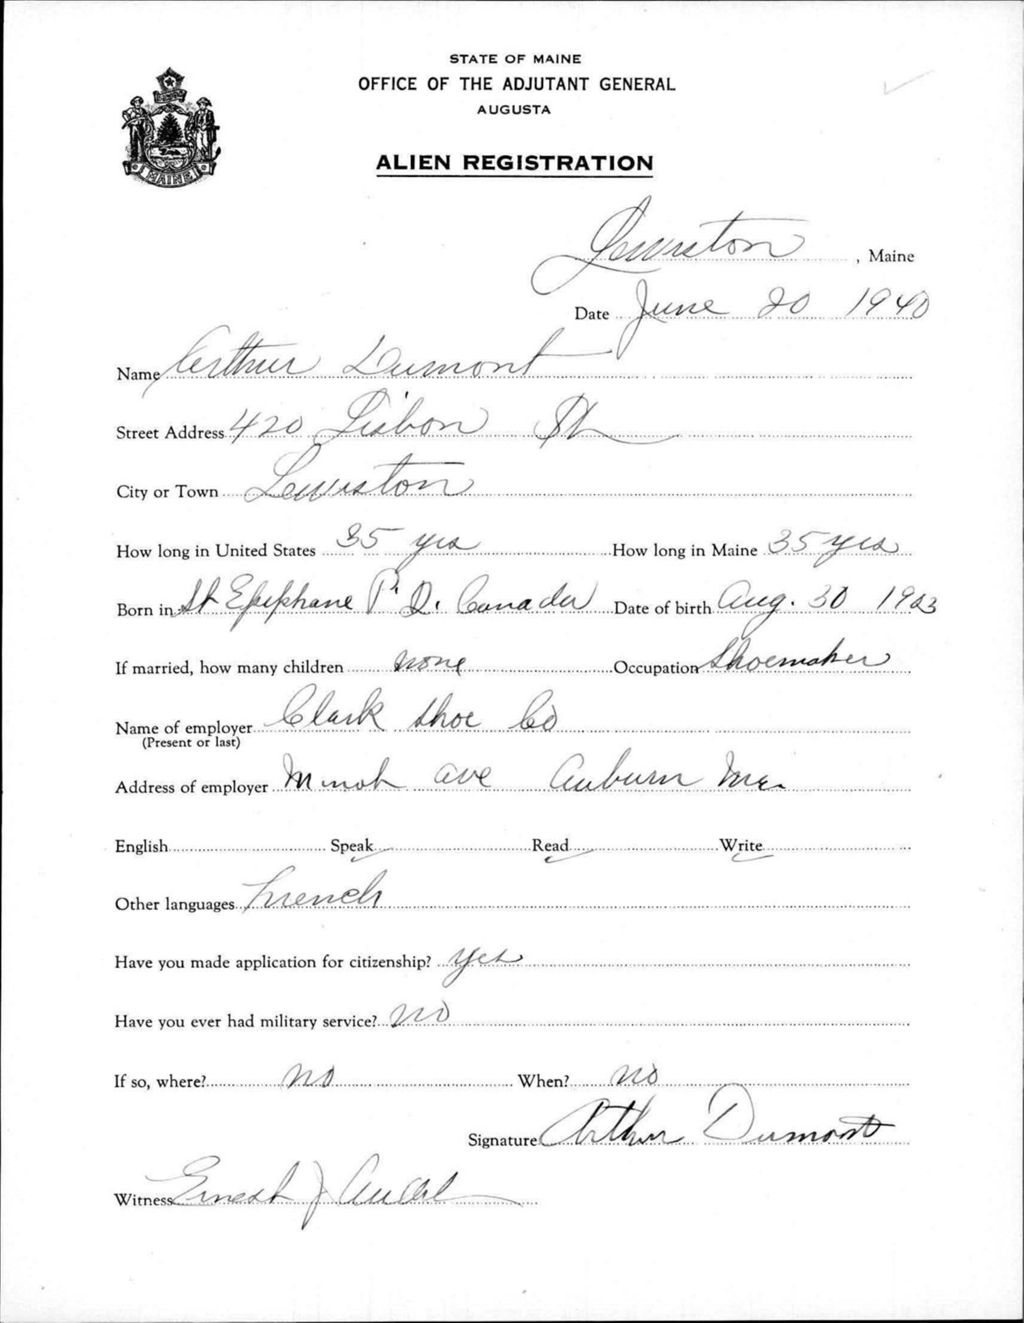 STATE OF MAINE
OFFICE OF THE ADJUTANT GENERAL
AUGUSTA
MAINE
ALIEN REGISTRATION
Lewiston, Maine
Date June 20 1940
Name Arthur Dumont
Street Address 420 Lisbon St
City or Town Lewiston
How long in United States 35 yrs How long in Maine 35 yrs
Born in St Epiphane P. Q. Canada Date of birth Aug. 30 1903
If married, how many children none Occupation Shoemaker
Name of employer Clark Shoe Co
(Present or last)
Address of employer Minot ave Auburn Me.
English Speak ✓ Read ✓ Write ✓
Other languages French
Have you made application for citizenship? yes
Have you ever had military service? no
If so, where? no When? no
Signature Arthur Dumont
Witness Ernest J